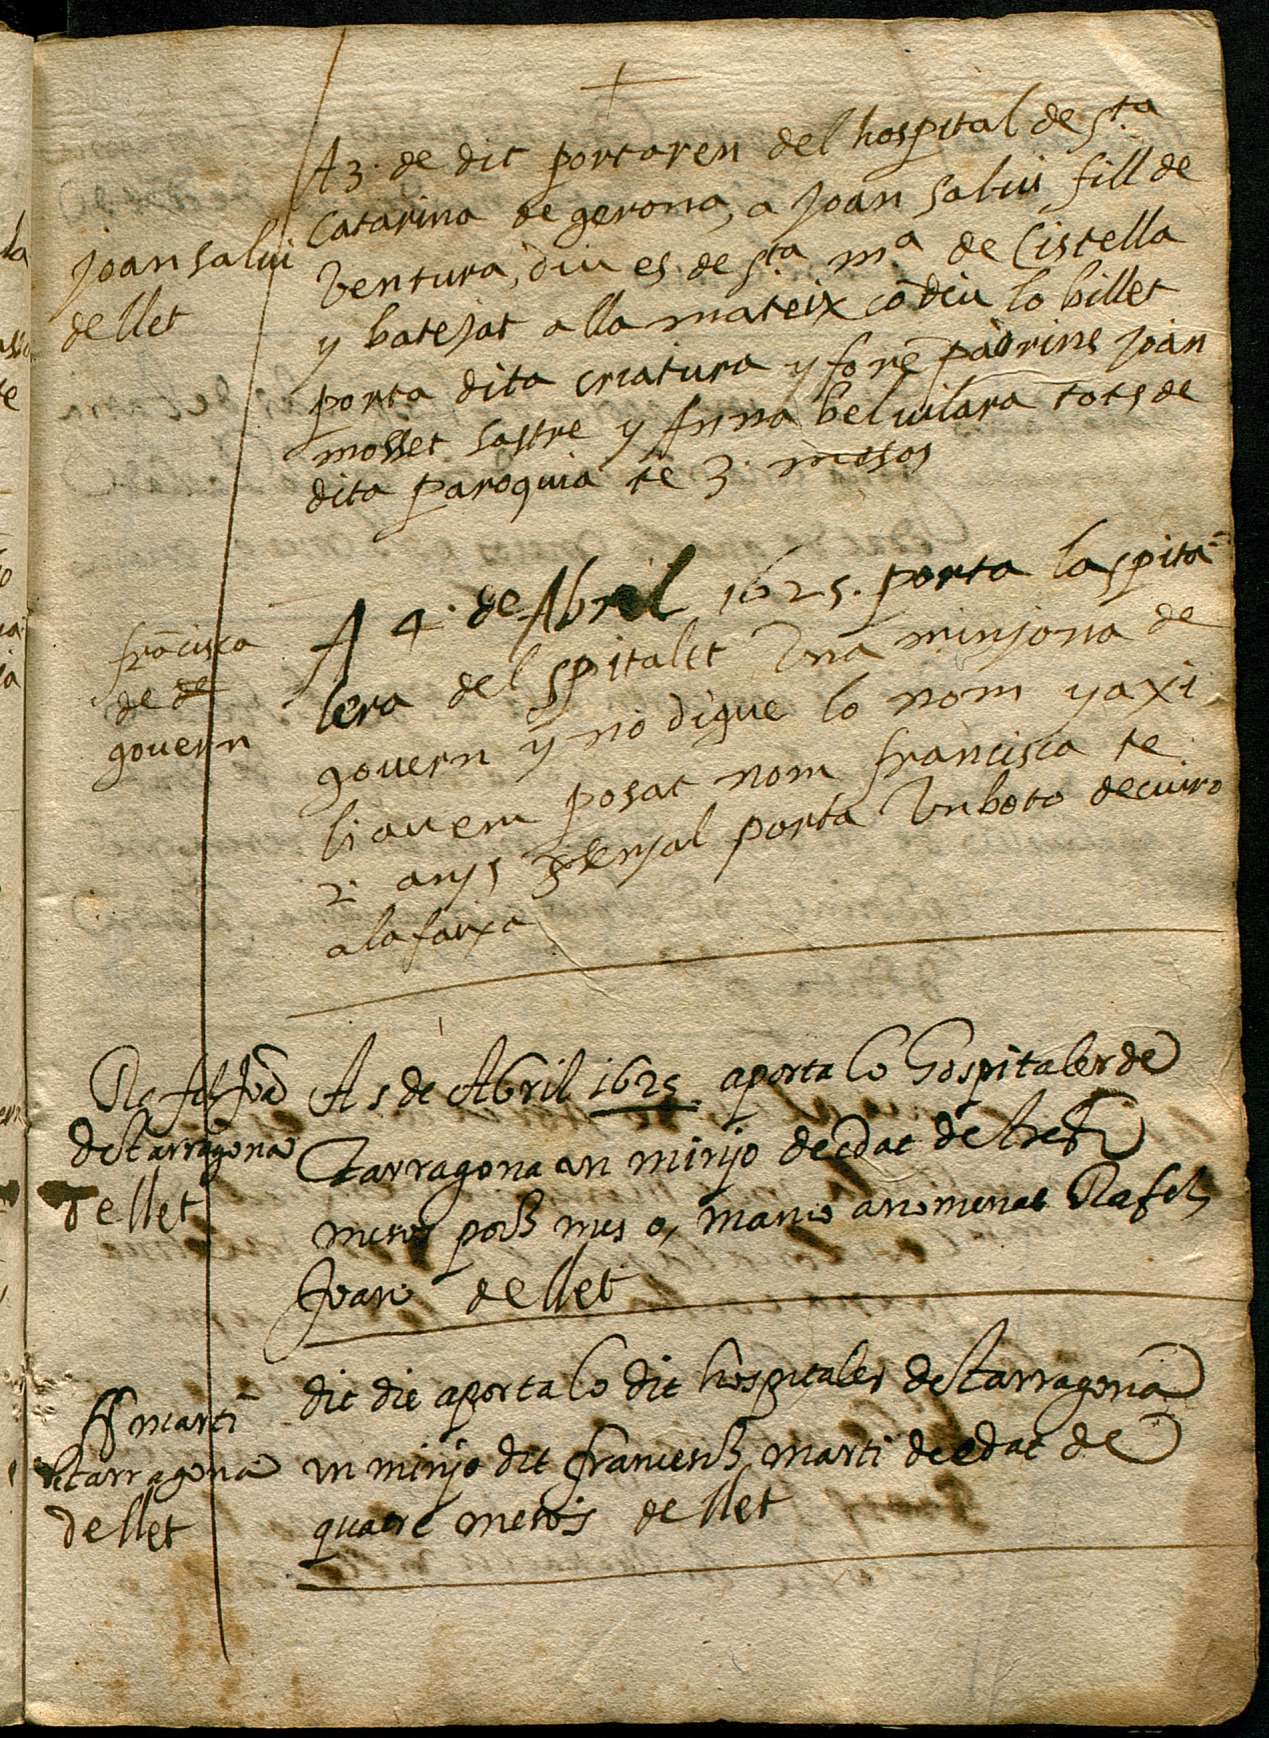 A 3. de dit portaren del hospital de Sta
Catarina de gerona, a Joan Salvi fill de
Joan Salvi
de llet
Ventura, diu es de Sta ma de Cistella
y batejat alla mateix cō diu lo billet
porta dita criatura y forē padrins Joan
mosset sastre y Anna belvilara tots de
dita paroquia te 3. mesos
frācisca
de de
govern
A 4. de Abril 1625. porta la spita
lera del spitalet Una minjona de
govern y no digue lo nom y axi
li avem posat nom francisca te
2. anys senyal porta Un boto de cuiro
a la faixa
Rafel Joā
de tarragona
de llet
A 5 de Abril 1625. aporta lo hospitaler de
tarragona un minyo de edat de
mesos mes o, manco anomenat Rafel
Joan de llet
ff marti
de tarragona
de llet
dit die aporta lo dit hospitaler de tarragona
un minyo dit marti de edat de
quatre mesos de llet